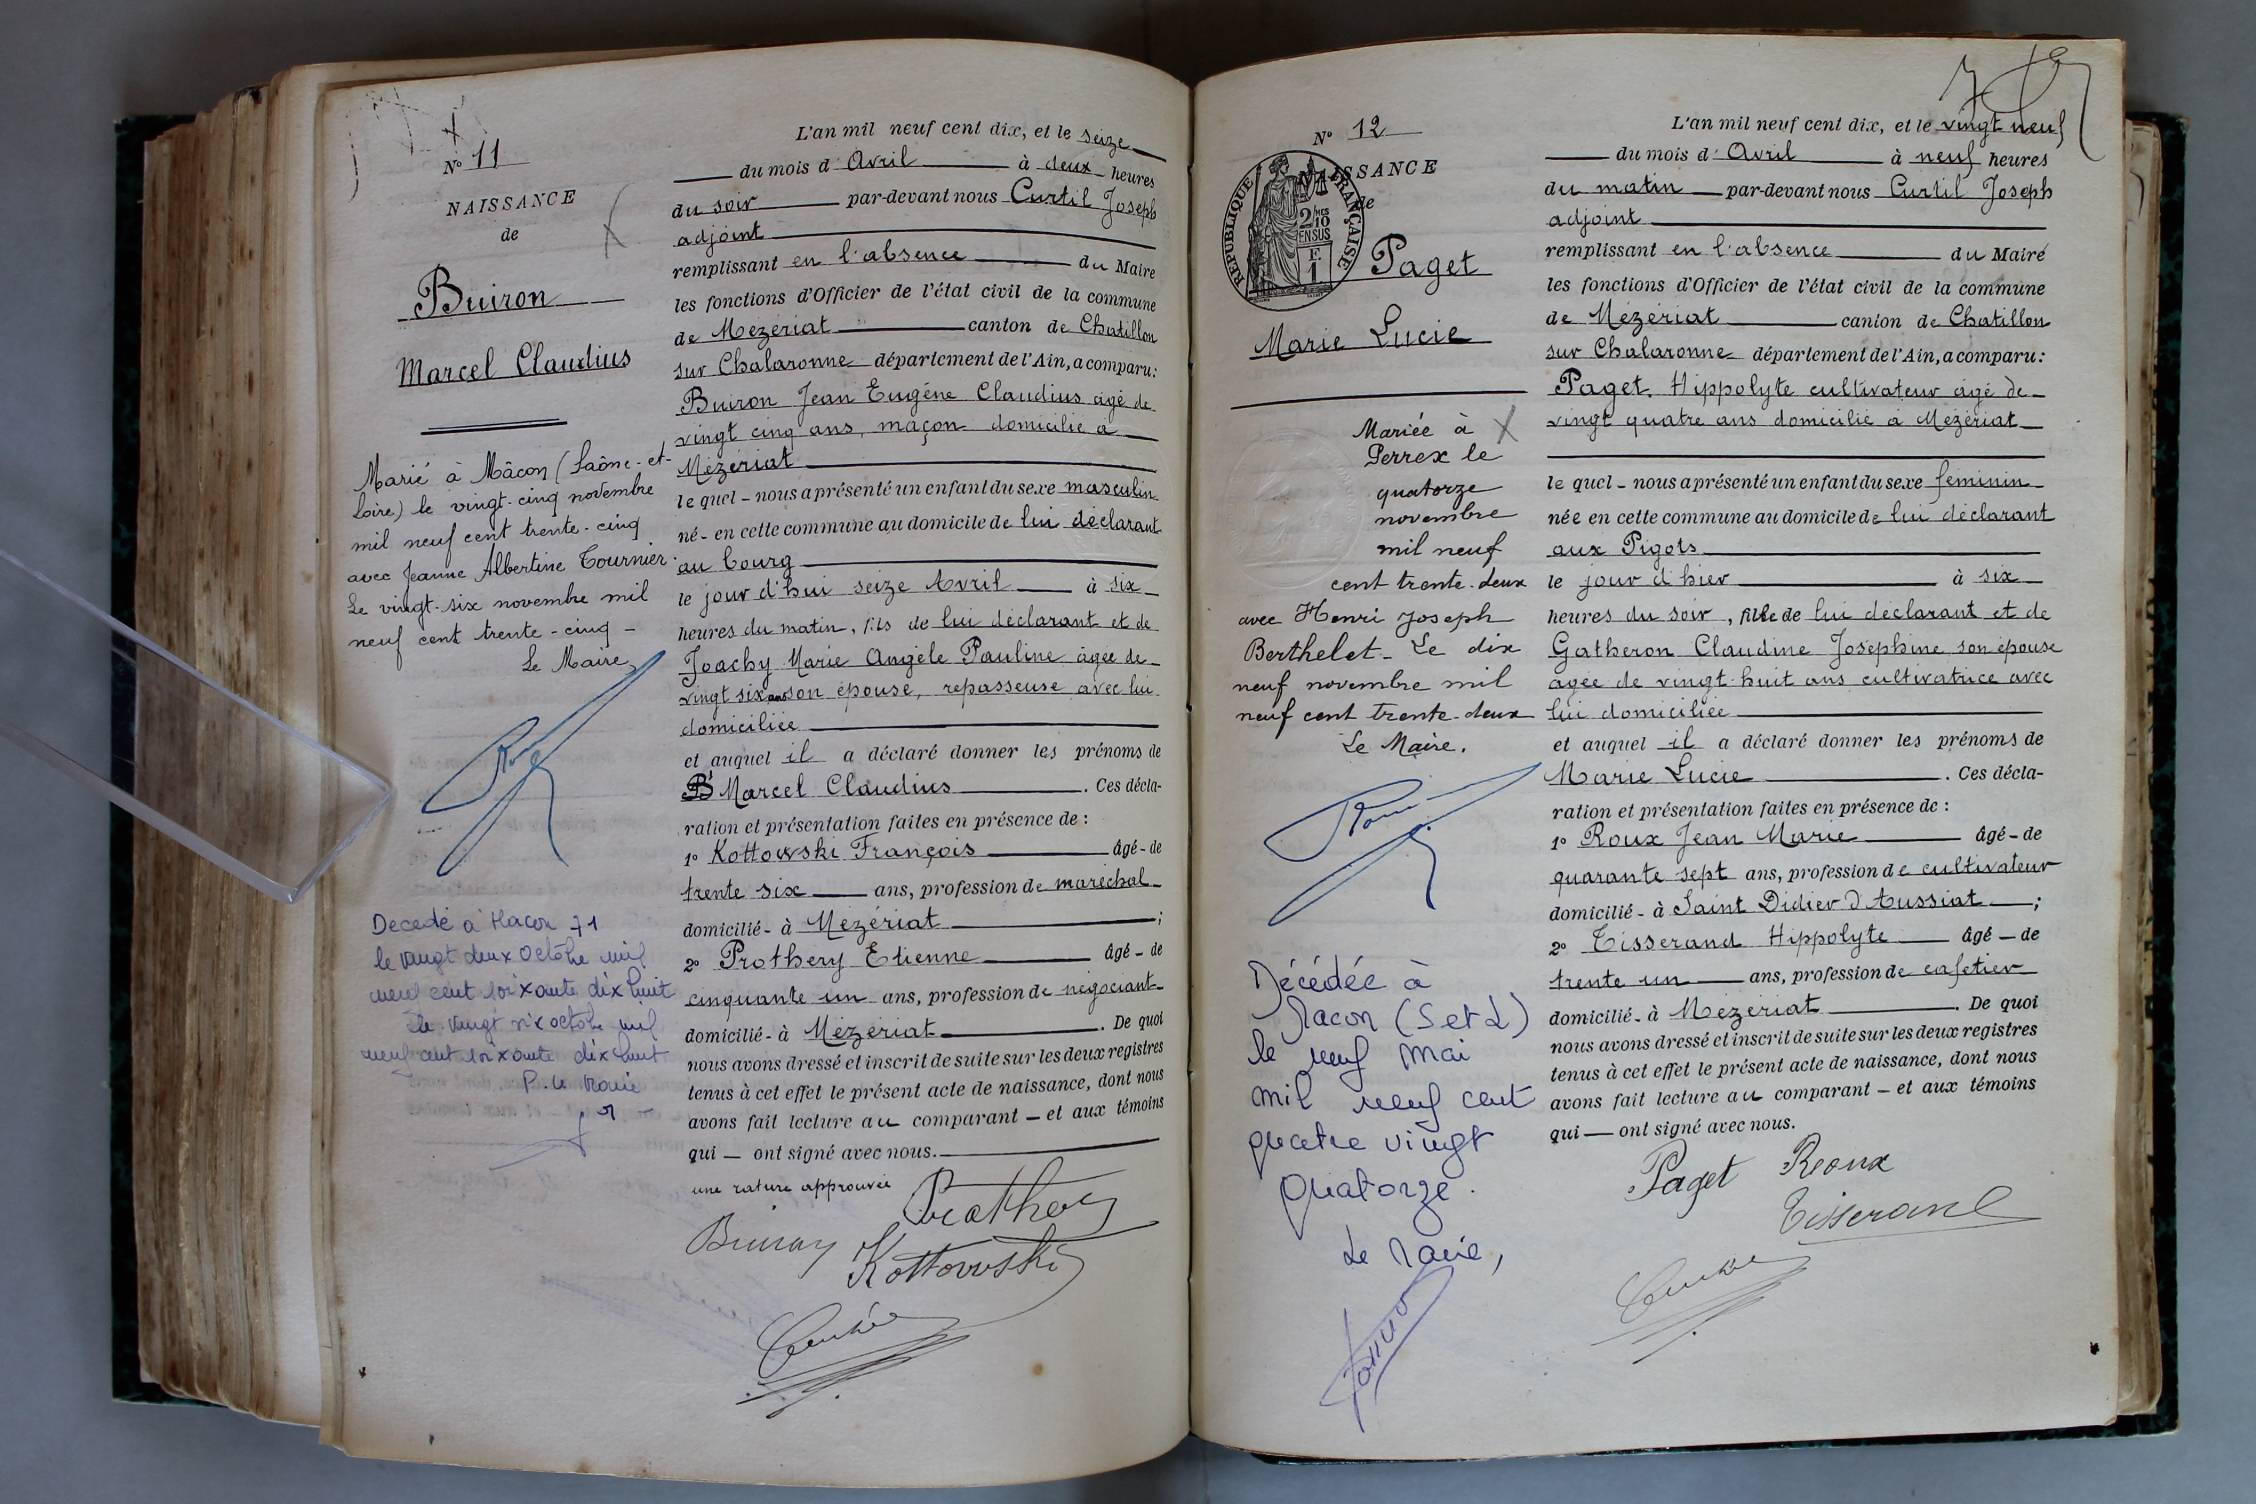 N° 11
NAISSANCE
de
Buiron
Marcel Claudius
Marié à Mâcon (Saône-et-
Loire) le vingt-cinq novembre
mil neuf cent trente-cinq
avec Jeanne Albertine Tournier.
Le vingt-six novembre mil
neuf cent trente-cinq -
Le Maire,
Decedé à Macon 71
le vingt deux octobre mil
neuf cent soixante dix huit
le vingt six octobre mil
neuf cent soixante dix huit
P. le Maire
L'an mil neuf cent dix, et le seize
du mois d'Avril à deux heures
du soir par-devant nous Curtil Joseph
adjoint
remplissant en l'absence du Maire
les fonctions d'Officier de l'état civil de la commune
de Mézériat canton de Chatillon
sur Chalaronne département de l'Ain, a comparu:
Buiron Jean Eugène Claudius âgé de
vingt cinq ans, maçon domicilié à
Mézériat
le quel - nous a présenté un enfant du sexe masculin
né - en cette commune au domicile de lui déclarant
au bourg
le jour d'hui seize Avril à six
heures du matin, fils de lui déclarant et de
Joachy Marie Angèle Pauline âgée de
vingt six ans son épouse, repasseuse avec lui
domiciliée
et auquel il a déclaré donner les prénoms de
Marcel Claudius. Ces décla-
ration et présentation faites en présence de :
1° Kottowski François âgé - de
trente six ans, profession de maréchal
domicilié - à Mézériat ;
2° Prothery Etienne âgé - de
cinquante un ans, profession de négociant
domicilié - à Mézériat. De quoi
nous avons dressé et inscrit de suite sur les deux registres
tenus à cet effet le présent acte de naissance, dont nous
avons fait lecture au comparant - et aux témoins
qui - ont signé avec nous.
une rature approuvée
Prothery
Buiron Kottowski
N° 12
NAISSANCE
de
RÉPUBLIQUE FRANÇAISE
2/10 EN SUS
F.
1
Paget
Marie Lucie
Mariée à
Perrex le
quatorze
novembre
mil neuf
cent trente-deux
avec Henri Joseph
Berthelet - Le dix
neuf novembre mil
neuf cent trente-deux
Le Maire.
Décédée à
Macon (S et L)
le neuf Mai
mil neuf cent
quatre vingt
quatorze.
Le Maire,
L'an mil neuf cent dix, et le vingt neuf
du mois d'Avril à neuf heures
du matin par-devant nous Curtil Joseph
adjoint
remplissant en l'absence du Maire
les fonctions d'Officier de l'état civil de la commune
de Mézériat canton de Chatillon
sur Chalaronne département de l'Ain, a comparu:
Paget Hippolyte cultivateur âgé de
vingt quatre ans domicilié à Mézériat
le quel - nous a présenté un enfant du sexe féminin
née en cette commune au domicile de lui déclarant
aux Pigots
le jour d'hier à six
heures du soir, fille de lui déclarant et de
Gatheron Claudine Joséphine son épouse
agée de vingt-huit ans cultivatrice avec
lui domiciliée
et auquel il a déclaré donner les prénoms de
Marie Lucie. Ces décla-
ration et présentation faites en présence de :
1° Roux Jean Marie âgé - de
quarante sept ans, profession de cultivateur
domicilié - à Saint Didier d'Aussiat ;
2° Tisserand Hippolyte âgé - de
trente un ans, profession de cafetier
domicilié - à Mézériat. De quoi
nous avons dressé et inscrit de suite sur les deux registres
tenus à cet effet le présent acte de naissance, dont nous
avons fait lecture au comparant - et aux témoins
qui - ont signé avec nous.
Paget Roux
Tisserand